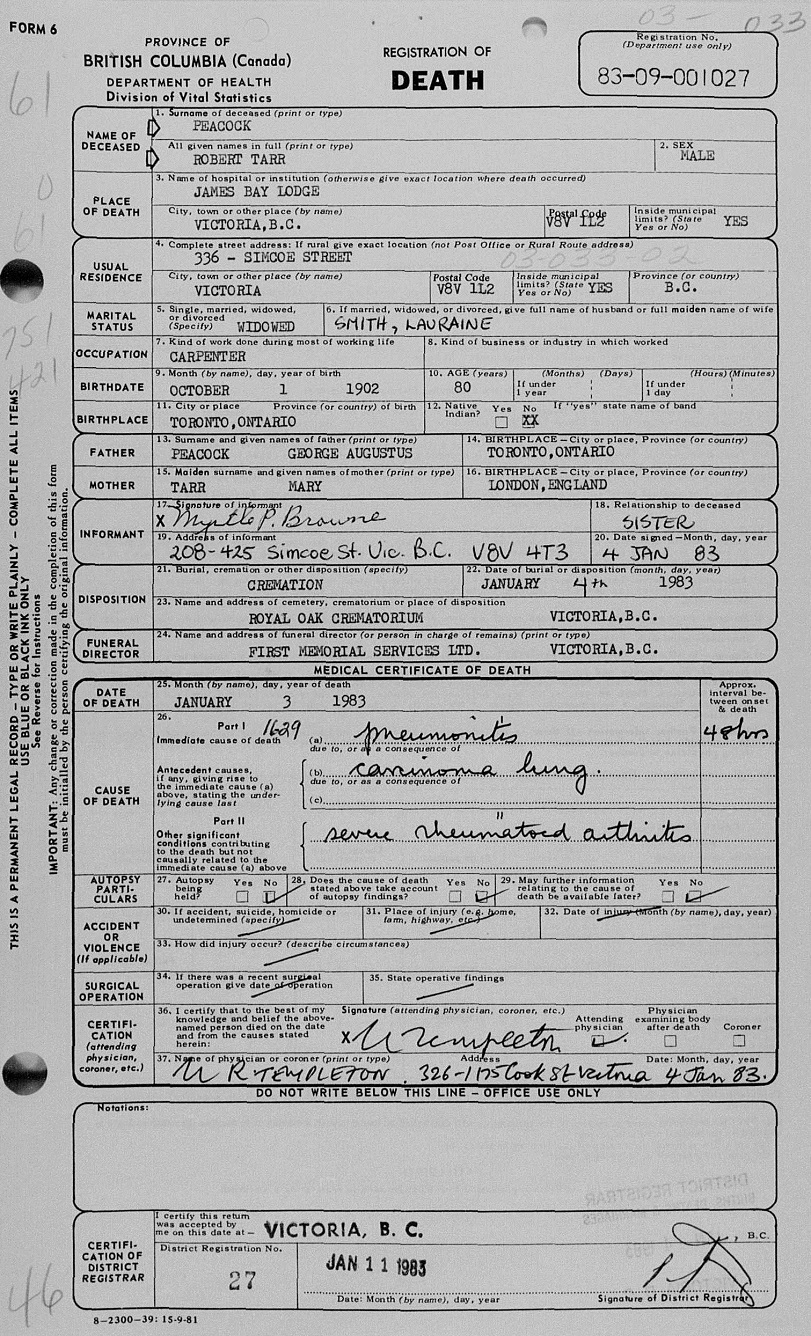 FORM 6
03- 033
PROVINCE OF
BRITISH COLUMBIA (Canada)
DEPARTMENT OF HEALTH
Division of Vital Statistics
REGISTRATION OF
DEATH
Registration No.
(Department use only)
83-09-001027
61
0
61
751
421
46
THIS IS A PERMANENT LEGAL RECORD - TYPE OR WRITE PLAINLY - COMPLETE ALL ITEMS
USE BLUE OR BLACK INK ONLY
See Reverse for Instructions
IMPORTANT: Any change or correction made in the completion of this form
must be initialled by the person certifying the original information.
NAME OF
DECEASED
1. Surname of deceased (print or type)
PEACOCK
All given names in full (print or type)
ROBERT TARR
2. SEX
MALE
PLACE
OF DEATH
3. Name of hospital or institution (otherwise give exact location where death occurred)
JAMES BAY LODGE
City, town or other place (by name)
VICTORIA,B.C.
Postal Code
V8V 1L2
Inside municipal
limits? (State
Yes or No)
YES
USUAL
RESIDENCE
4. Complete street address: If rural give exact location (not Post Office or Rural Route address)
336 - SIMCOE STREET
03-033 02
City, town or other place (by name)
VICTORIA
Postal Code
V8V 1L2
Inside municipal
limits? (State
Yes or No)
YES
Province (or country)
B.C.
MARITAL
STATUS
5. Single, married, widowed,
or divorced
(Specify)
WIDOWED
6. If married, widowed, or divorced, give full name of husband or full maiden name of wife
SMITH, LAURAINE
OCCUPATION
7. Kind of work done during most of working life
CARPENTER
8. Kind of business or industry in which worked
BIRTHDATE
9. Month (by name), day, year of birth
OCTOBER 1 1902
10. AGE (years)
80
(Months) (Days)
If under
1 year
(Hours) (Minutes)
If under
1 day
BIRTHPLACE
11. City or place Province (or country) of birth
TORONTO,ONTARIO
12. Native
Indian?
Yes No
XX
If "yes" state name of band
FATHER
13. Surname and given names of father (print or type)
PEACOCK GEORGE AUGUSTUS
14. BIRTHPLACE - City or place, Province (or country)
TORONTO,ONTARIO
MOTHER
15. Maiden surname and given names of mother (print or type)
TARR MARY
16. BIRTHPLACE - City or place, Province (or country)
LONDON,ENGLAND
INFORMANT
17. Signature of informant
X Myrtle P. Browne
18. Relationship to deceased
SISTER
19. Address of informant
208-425 Simcoe St. Vic. B.C. V8V 4T3
20. Date signed - Month, day, year
4 JAN 83
DISPOSITION
21. Burial, cremation or other disposition (specify)
CREMATION
22. Date of burial or disposition (month, day, year)
JANUARY 4th 1983
23. Name and address of cemetery, crematorium or place of disposition
ROYAL OAK CREMATORIUM VICTORIA,B.C.
FUNERAL
DIRECTOR
24. Name and address of funeral director (or person in charge of remains) (print or type)
FIRST MEMORIAL SERVICES LTD. VICTORIA,B.C.
MEDICAL CERTIFICATE OF DEATH
DATE
OF DEATH
25. Month (by name), day, year of death
JANUARY 3 1983
Approx.
interval be-
tween onset
& death
CAUSE
OF
DEATH
26.
Part I 1629
Immediate cause of death
(a) pneumonitis
48hrs
due to, or as a consequence of
Antecedent causes,
if any, giving rise to
the immediate cause (a)
above, stating the under-
lying cause last
(b) carcinoma lung.
due to, or as a consequence of
(c)
Part II
Other significant
conditions contributing
to the death but not
causally related to the
immediate cause (a) above
"
severe rheumatoid arthritis
AUTOPSY
PARTI-
CULARS
27. Autopsy
being
held?
Yes No
28. Does the cause of death
stated above take account
of autopsy findings?
Yes No
29. May further information
relating to the cause of
death be available later?
Yes No
ACCIDENT
OR
VIOLENCE
(If applicable)
30. If accident, suicide, homicide or
undetermined (specify)
31. Place of injury (e.g. home,
farm, highway, etc.)
32. Date of injury (Month (by name), day, year)
33. How did injury occur? (describe circumstances)
SURGICAL
OPERATION
34. If there was a recent surgical
operation give date of operation
35. State operative findings
CERTIFI-
CATION
(attending
physician,
coroner, etc.)
36. I certify that to the best of my
knowledge and belief the above-
named person died on the date
and from the causes stated
herein:
Signature (attending physician, coroner, etc.)
X Templeton
Attending
physician
Physician
examining body
after death
Coroner
37. Name of physician or coroner (print or type) Address Date: Month, day, year
R TEMPLETON. 326-1175 Cook St Victoria 4 Jan 83.
DO NOT WRITE BELOW THIS LINE - OFFICE USE ONLY
Notations:
DISTRICT REGISTRAR
CERTIFI-
CATION OF
DISTRICT
REGISTRAR
I certify this return
was accepted by
me on this date at -
VICTORIA, B. C.
, B.C.
District Registration No.
27
JAN 11 1983
Date: Month (by name), day, year
Signature of District Registrar
8-2300-39: 15-9-81